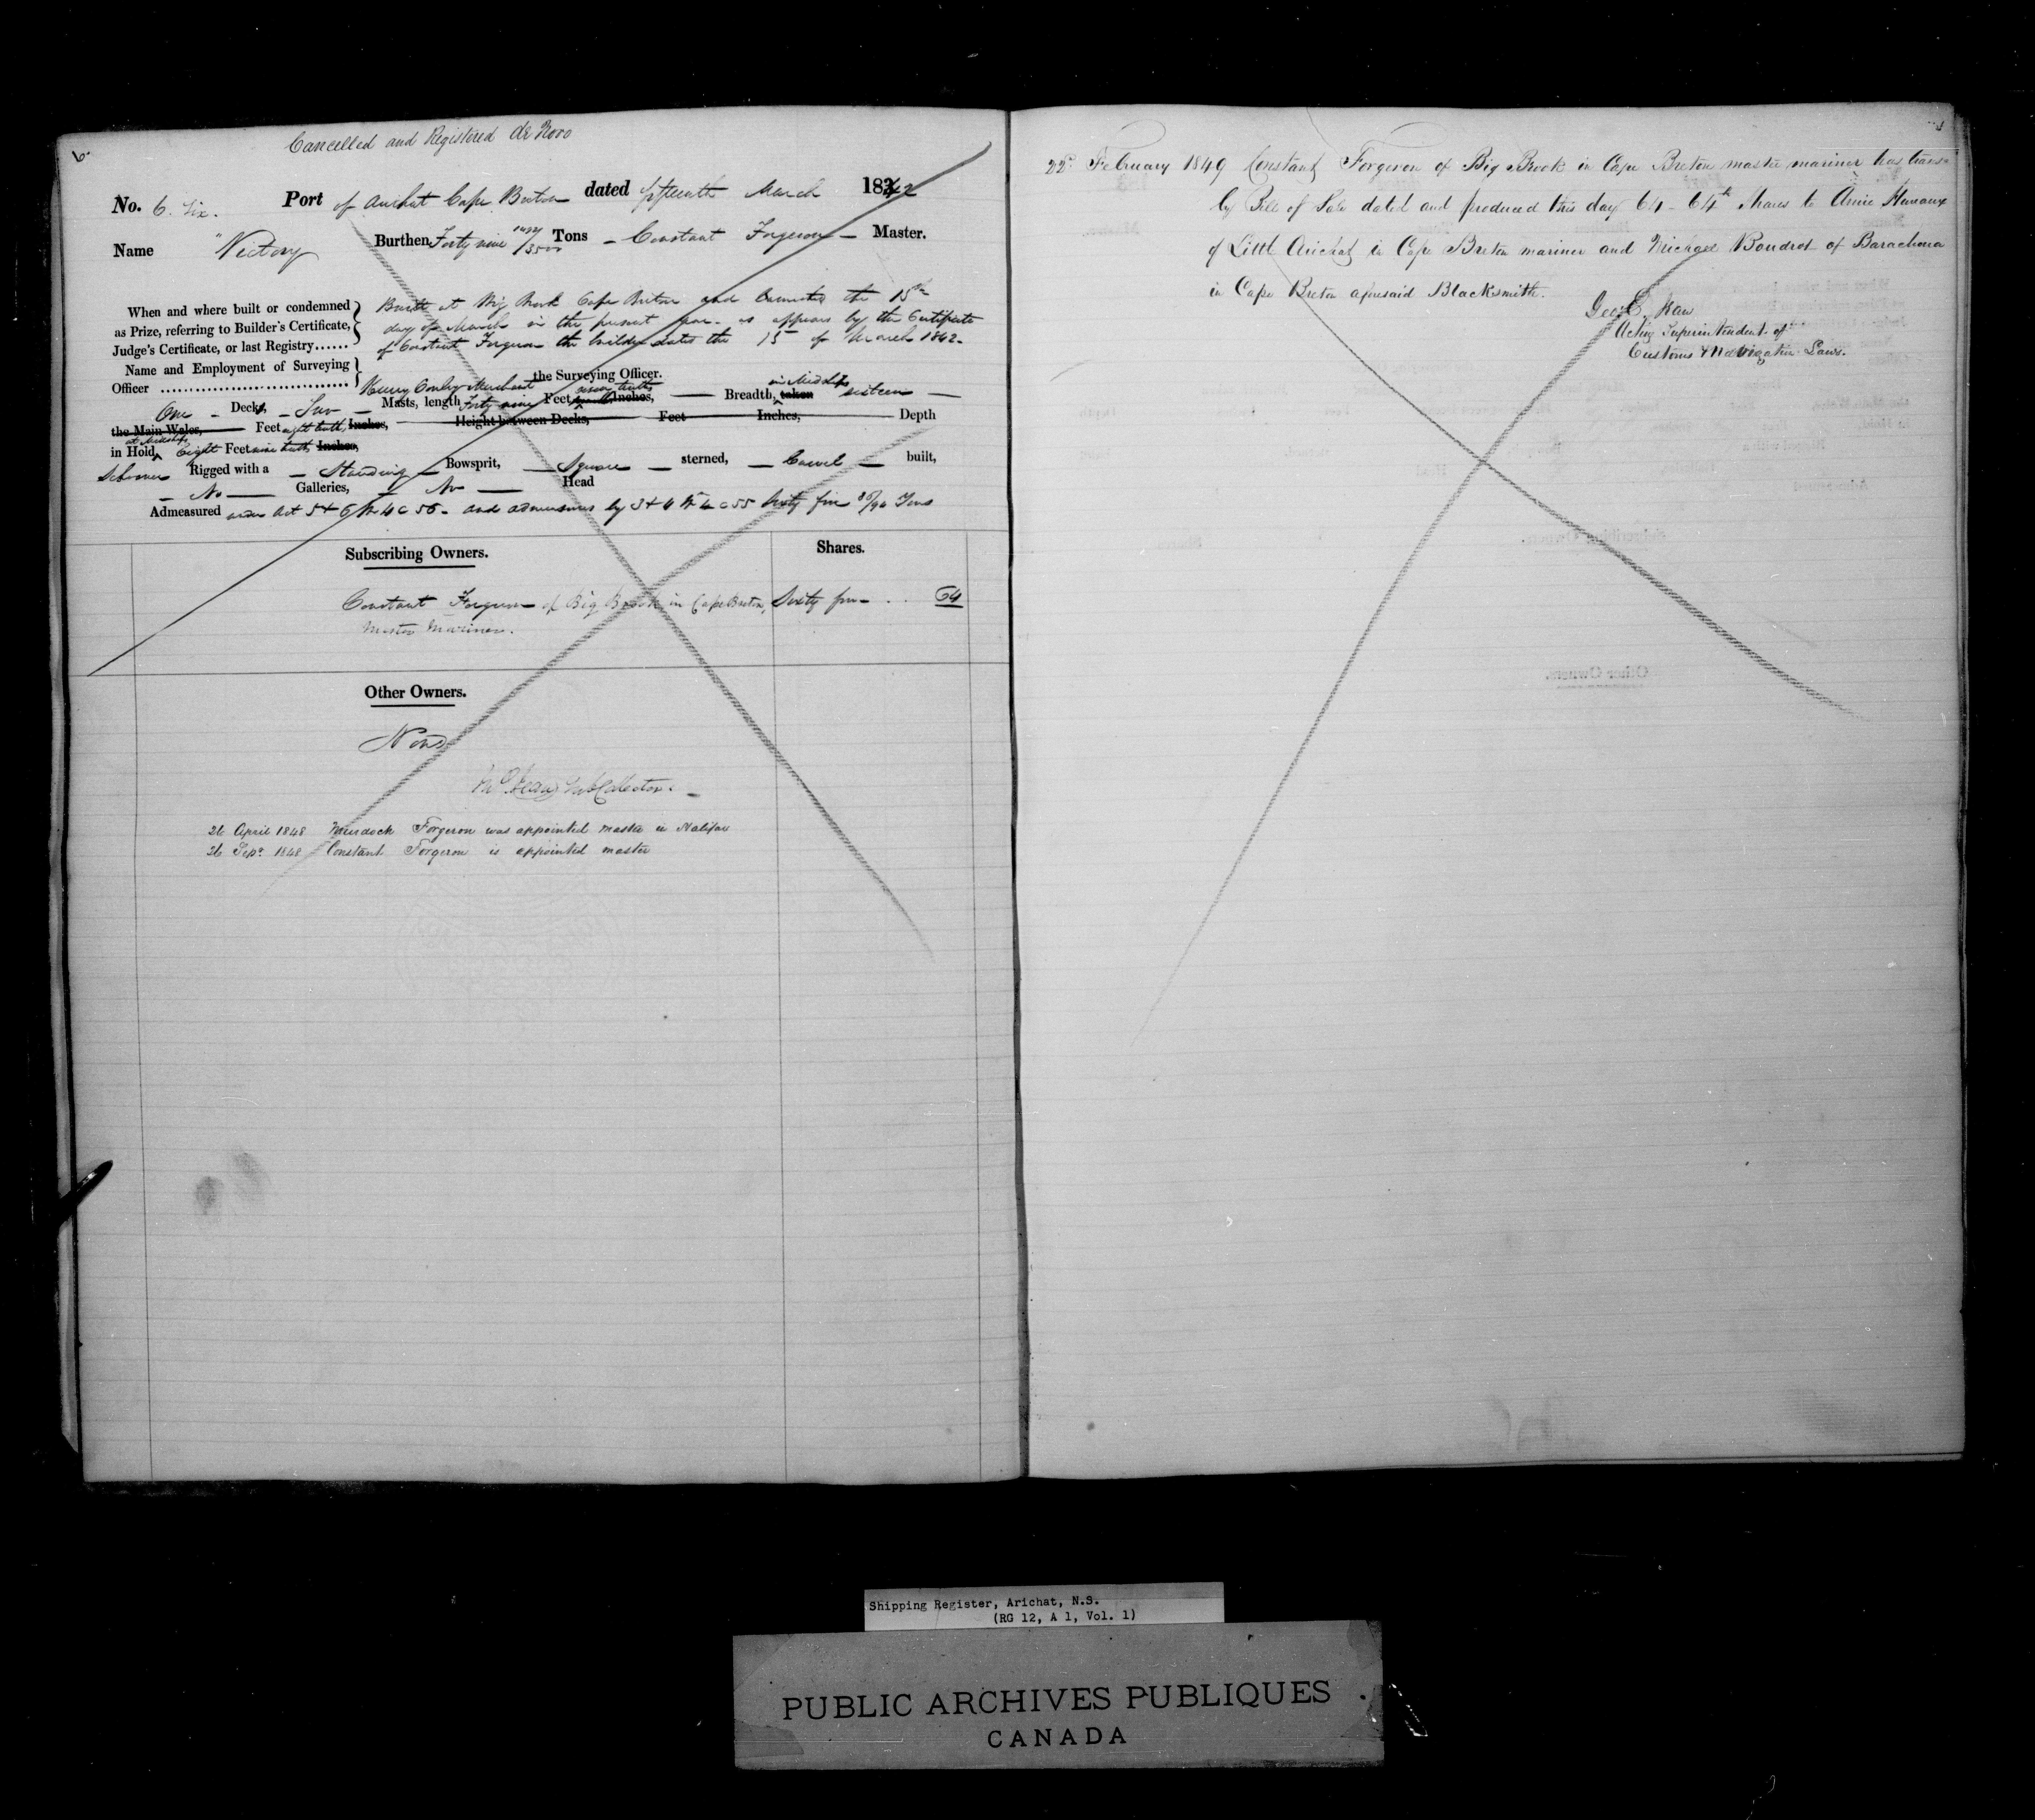 6
Cancelled and Registered de Novo
No. 6. Six. Port of Arichat Cape Breton dated fifteenth March 1842
Name "Victory Burthen Forty nine /3500 Tons - Constant Forgeron - Master.
When and where built or condemned as Prize, referring to Builder's Certificate, Judge's Certificate, or last Registry......
Built at Big Brook Cape Breton and the 15th
day of March in the present year as appears by the Certificate
of Constant Forgeron the builder dated the 15 of March 1842.
Name and Employment of Surveying Officer
Henry Merchant the Surveying Officer.
One - Decks, - Two - Masts, length Forty nine Feet seven tenths Inches, - Breadth, in Midships taken sixteen -
the Main Wales, Feet eight tenths Inches, - Height between Decks, Feet Inches, Depth
in Hold at Midships Eight Feet nine tenths Inches,
Schooner Rigged with a - Standing - Bowsprit, - Square - sterned, - Carvel - built,
- No - Galleries, - No - Head
Admeasured under Act 5 & 6 Wm 4 c 56. and admeasures by 3 & 4 Wm 4 c 55 Sixty five /94 Tons
Subscribing Owners. Shares.
Constant Forgeron of Big Brook in Cape Breton, Sixty four - . . 64
Master Mariner.
Other Owners.
None
Sub Collector.
26 April 1848 Murdock Forgeron was appointed master in Halifax
26 Sepr 1848 Constant Forgeron is appointed master
22d February 1849 Constant Forgeron of Big Brook in Cape Breton master mariner has trans
by Bill of Sale dated and produced this day 64 - 64th Shares to
of Little Arichat in Cape Breton mariner and Michael Boudrot of Barachois
in Cape Breton aforesaid Blacksmith.
Geo. C.
Acting Superintendent of
Customs & Navigation Laws.
Shipping Register, Arichat, N.S.
(RG 12, A 1, Vol. 1)
PUBLIC ARCHIVES PUBLIQUES
CANADA